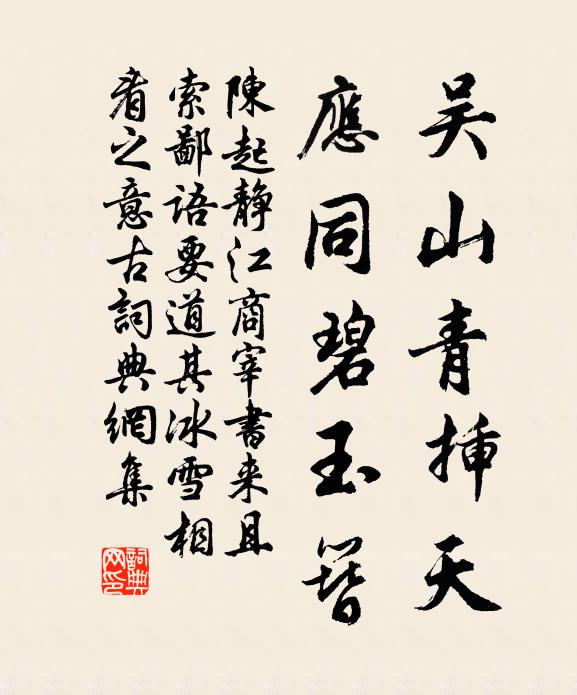 吴山青挿天
應同碧玉簪
陳起静江商宰書来且
索鄙语要道其冰雪相
看之意古詞典網集
詞典網印